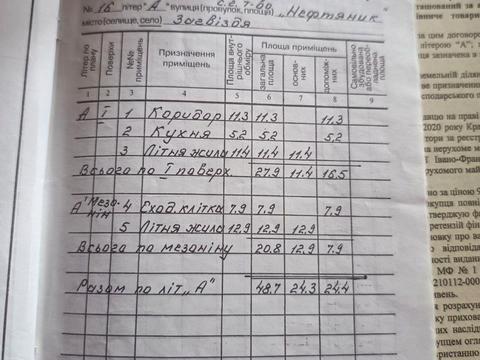 № 16 літ "А" вулиця (провулок, площа) С.Т. 7-00 "Нефтяник"
місто (селище, село) Загвіздя
Літер по плану Поверхи №№ приміщень Призначення приміщень Площа внутрішнього обміру Площа приміщень загальна площа основних допоміжних Самовільно збудована або переобладнана площа
1 2 3 4 5 6 7 8 9
А I 1 Коридор 11,3 11.3 11.3
2 Кухня 5,2 5,2 5,2
3 Літня жила 11,4 11,4 11.4
Всього по I поверх. 27,9 11,4 16,5
А' Мезонін 4 Сход. клітка 7.9 7.9 7.9
5 Літня жила 12.9 12.9 12,9
Всього по мезоніну 20.8 12,9 7.9
Разом по літ „А" 48.7 24,3 24,4
за цим договоро
літерою "А";
ща зазначена в
емельній ділян
ве призначення
сподарського п
2020 року
тори за реєстр
на нерухоме м
Івано-Фран
рухомого май
но за ціною 9
купця повні
тверджую ф
ретензій фін
новку про ва
відповідност
ності виданий
МФ № 1
210112-000
вень.
я розрахун
ку приховат
них наслідк
упцем огля
ристанню